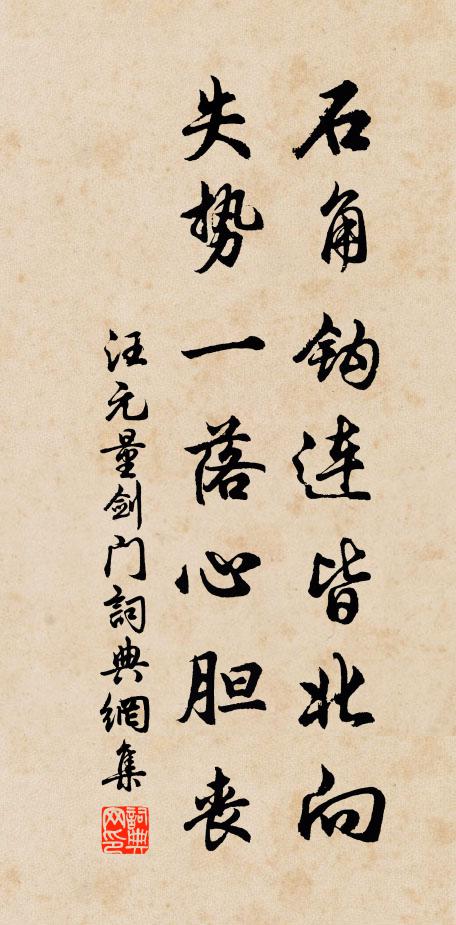 石角钩连皆北向
失势一落心胆丧
汪元量剑门詞典網集
詞典网印